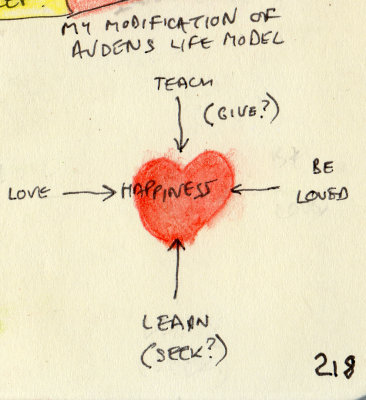 MY MODIFICATION OF
AUDENS LIFE MODEL
TEACH
(GIVE?)
LOVE
HAPPINESS
BE
LOVED
LEARN
(SEEK?)
218